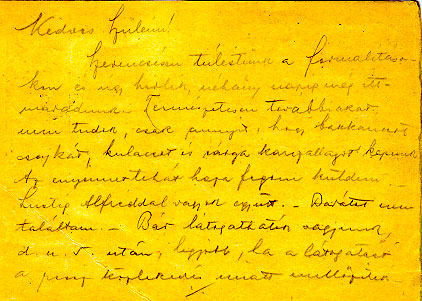 Kedves Szüleim!
Szerencsésen túlestünk a formalitáso-
kon és úgy hírlik, néhány napig még itt
maradunk. Természetesen továbbiakat
nem tudok, csak annyit, hogy bakkancsot
csajkát, kulacsot és sárga karszallagot kapunk
Az enyémet tehát haza fogom küldeni
Alfréddal vagyok együtt. – nem
találtam. – Bár látogathatók vagyunk,
d. u. 5 után, legjobb, ha a látogatást
a közlekedés miatt